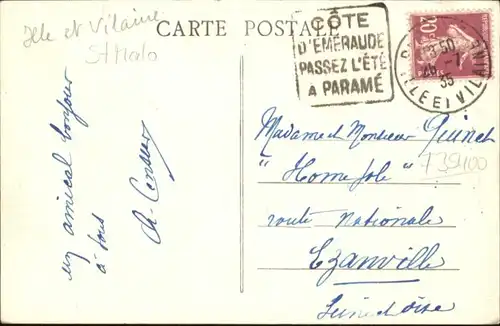 Ille et Vilaine
St Malo
CARTE POSTALE
CÔTE
D'ÉMERAUDE
PASSEZ L'ÉTÉ
A PARAMÉ
20
35
ILLE ET VILAINE
un amical bonjour
à tous
Madame et Monsieur Guinet
"Home Jole"
T35400
route Nationale
Ezanville
Seine et Oise